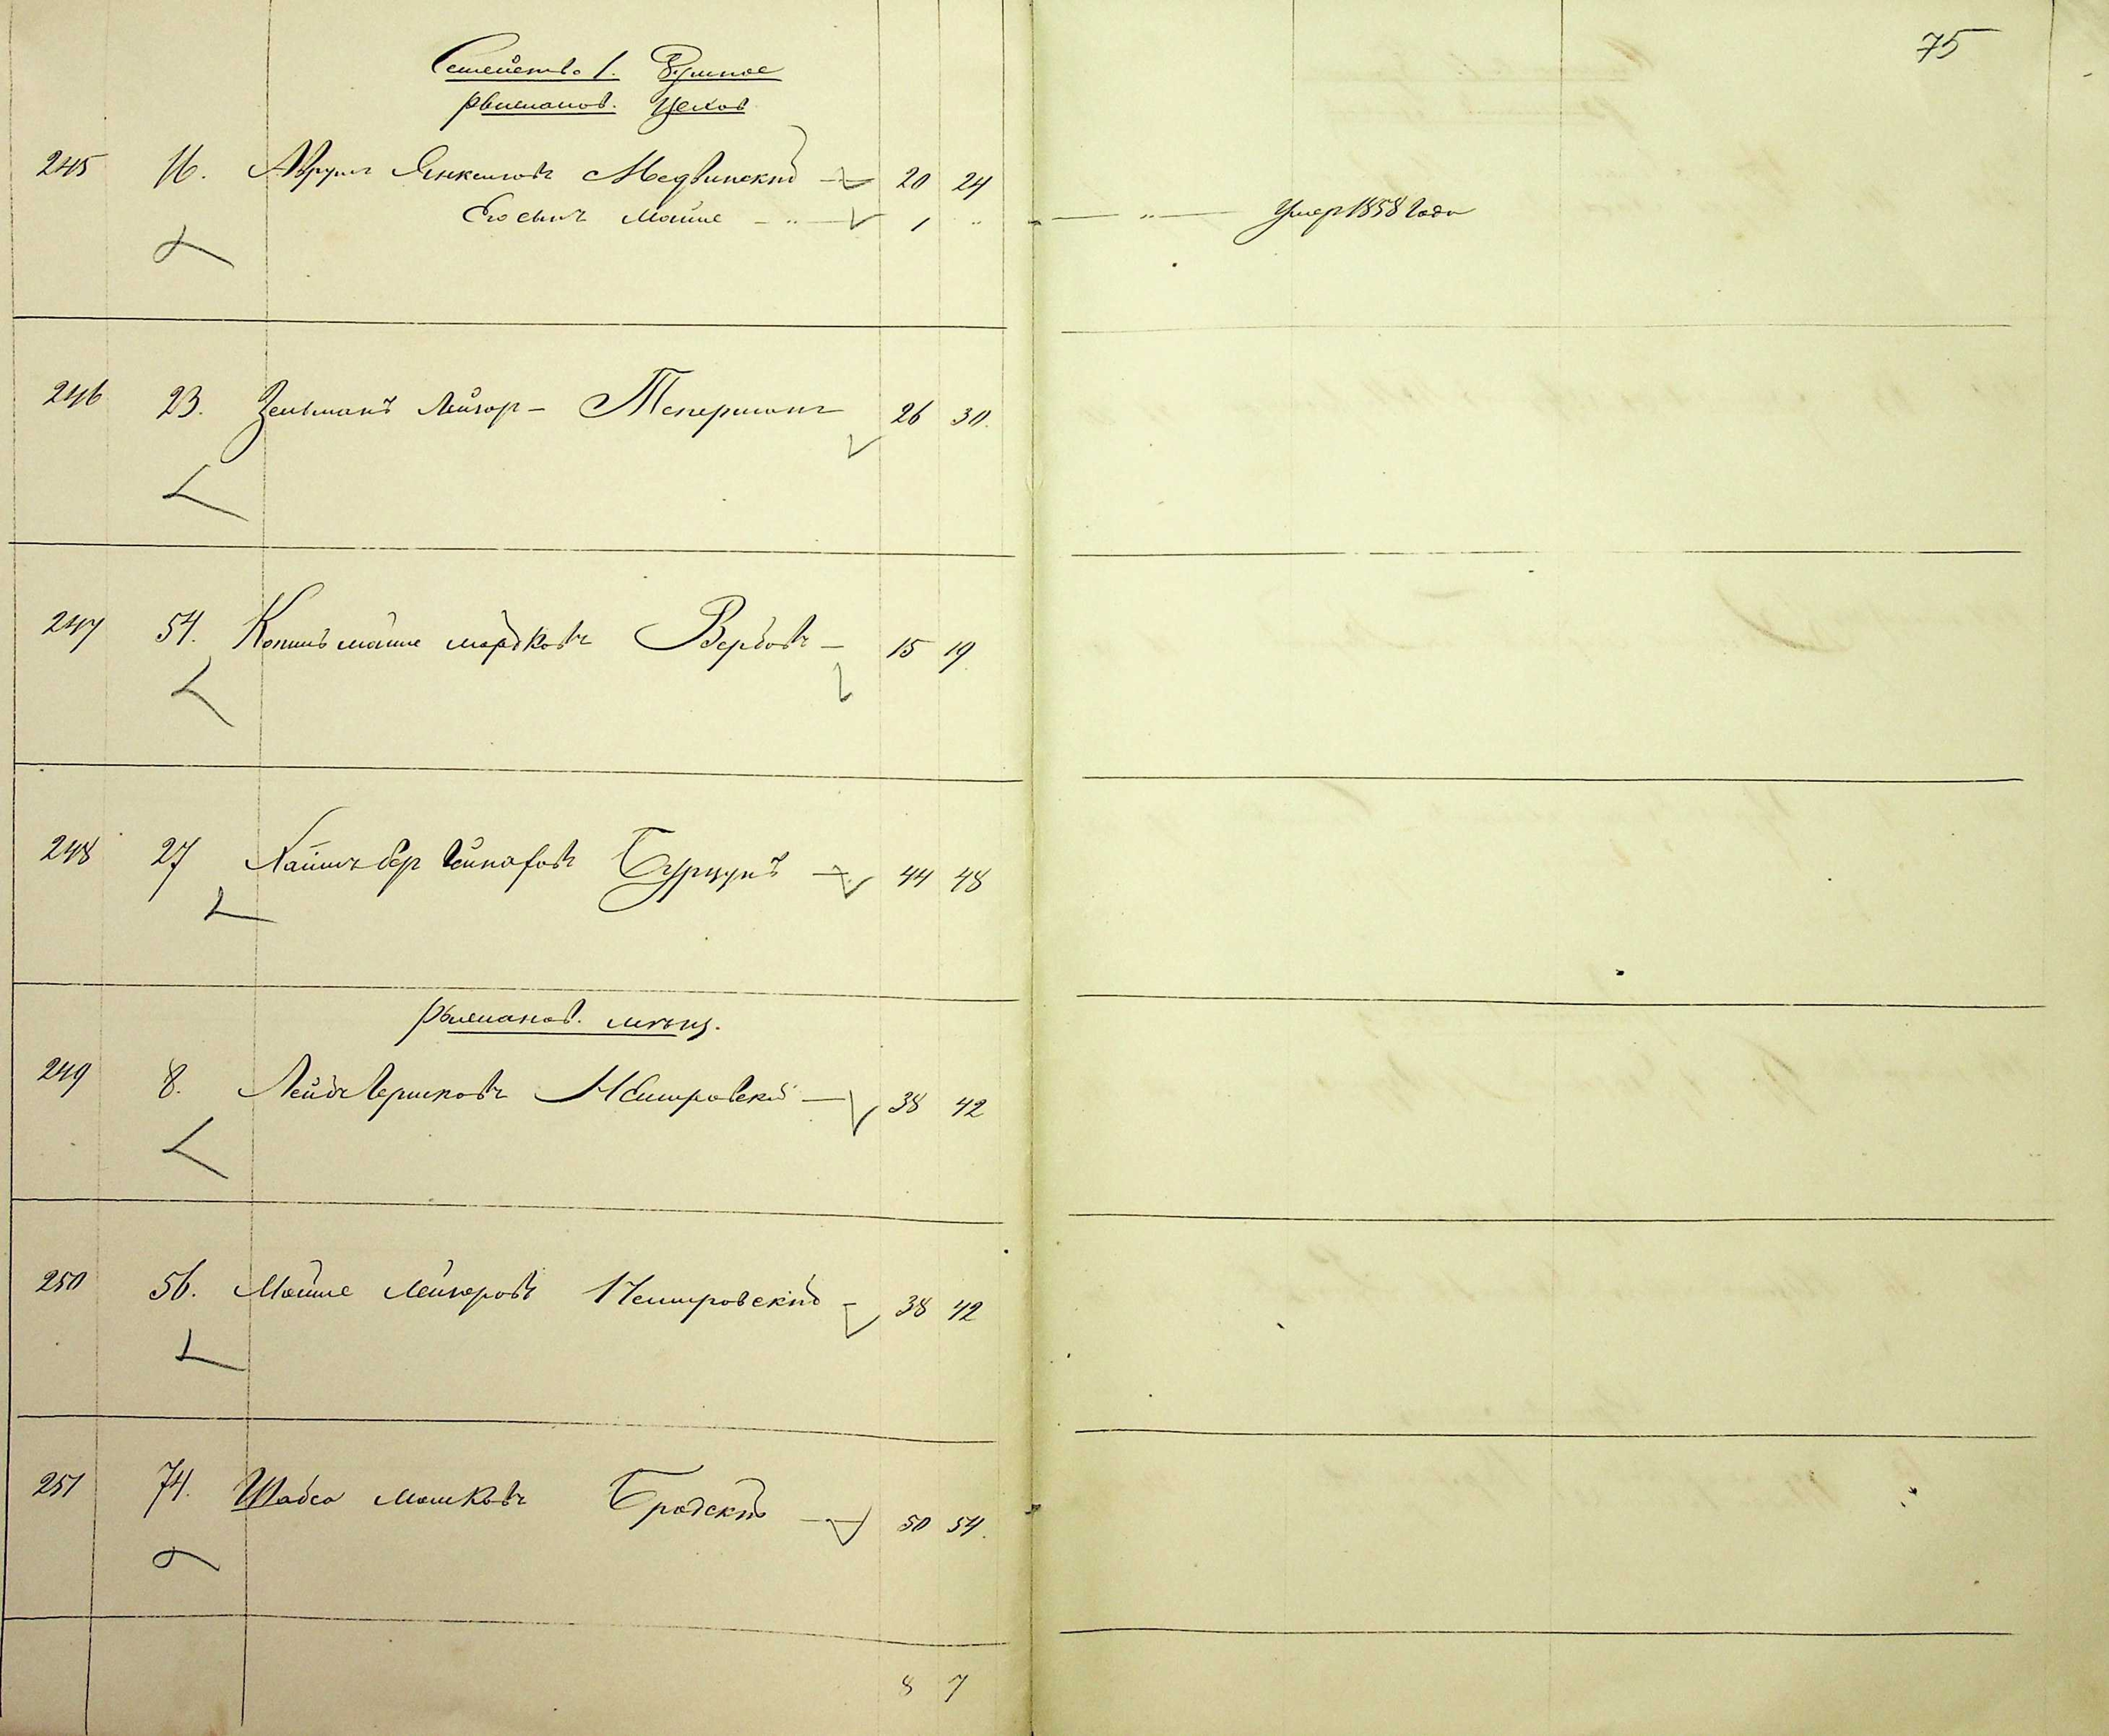 75
Семейств. 1. Душное
рыжанов. Цехов
245 16. Аврум Янкелевъ Медвинскій 20 24
Его сынъ Мошие - „ - 1 „ - „ - Умер 1858 Года
246 23. Зельманъ Лейзор- Теперманъ 26 30.
247 54. Копиль мошие мордковъ Вербовъ - 15 19
248 27 Хаимъ бер Бурцунъ 44 48
мѣщ.
249 8. Лейбъ Гершковъ Немировскій 38 42
250 56. Мошие Лейзеровъ Немировскій 38 42
251 74. Шабса мошковъ Бродскій 50 54.
8 7